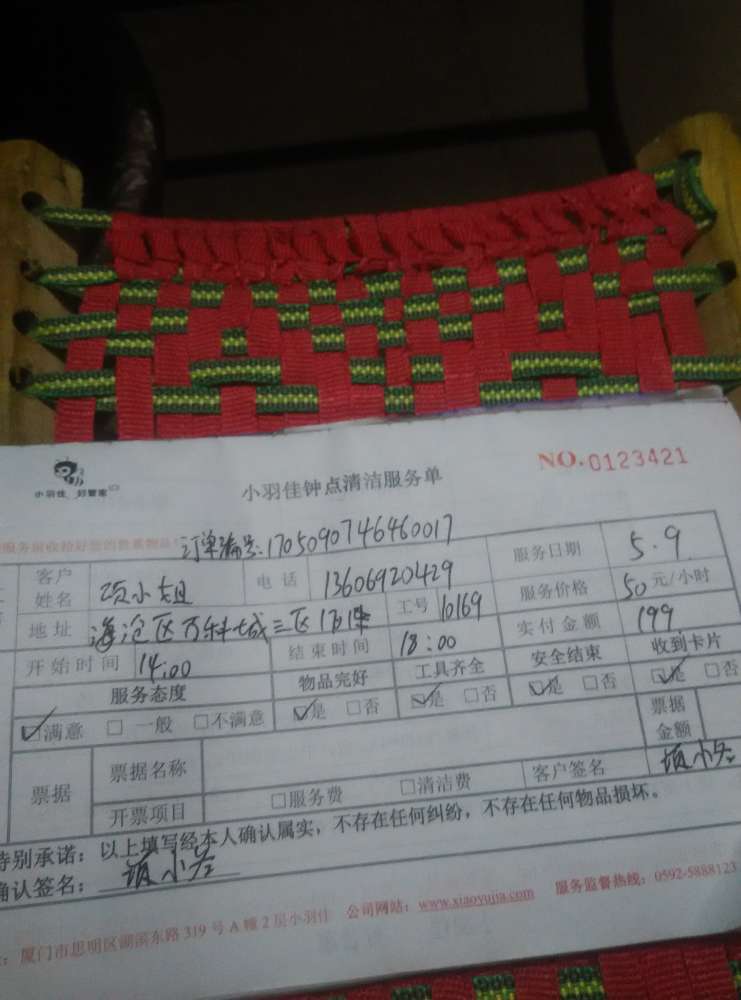 小羽佳 好管家
小羽佳钟点清洁服务单
NO.0123421
订单编号:1705090746460017
客户姓名 项小姐 电话 13606920429 服务日期 5.9
地址 海沧区万科城三区 工号 10169 服务价格 50元/小时
开始时间 14:00 结束时间 18:00 实付金额 199
服务态度 物品完好 工具齐全 安全结束 收到卡片
☑满意 □一般 □不满意 ☑是 □否 ☑是 □否 ☑是 □否 ☑是 □否
票据 票据名称 票据金额
开票项目 □服务费 □清洁费 客户签名
特别承诺：以上填写经本人确认属实，不存在任何纠纷，不存在任何物品损坏。
确认签名：
厦门市思明区湖滨东路319号A幢2层小羽佳 公司网站：www.xiaoyujia.com 服务监督热线：0592-5888123